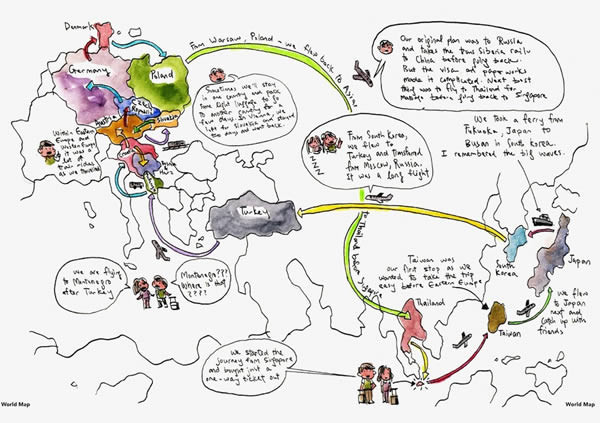 Denmark
Germany
Poland
From Warsaw, Poland - we flew back to Asia!
Our original plan was to Russia
and take the trans Siberia
to China before
But the visa and paper works
made it complicated.
to Thailand for
before back to Singapore
Sometimes we'll stay
in one country and pack
some light luggage to go
to another country for a
few days. In Vienna, we
left for Slovakia and
the days and went back.
Czech
Republic
Austria
Slovakia
Within Eastern
Europe and
Western Europe
it was a
lot of
train rides
as we travelled
From South Korea,
we flew to
Turkey and transferred
from Moscow, Russia.
It was a long flight
ZZZ
We took a ferry from
Fukuoka, Japan
to
Busan in South Korea.
I remembered the big waves.
Turkey
to Thailand before Singapore
South
Korea
Japan
we are flying
to Montenegro
after Turkey
Montenegro???
Where is that
????
Taiwan was
our first stop as we
wanted to take the trip
easy before Eastern Europe
Thailand
Taiwan
we flew
to Japan
next and
catch up with
friends
we started the
journey from Singapore
and bought just a
one-way ticket out
World Map
World Map